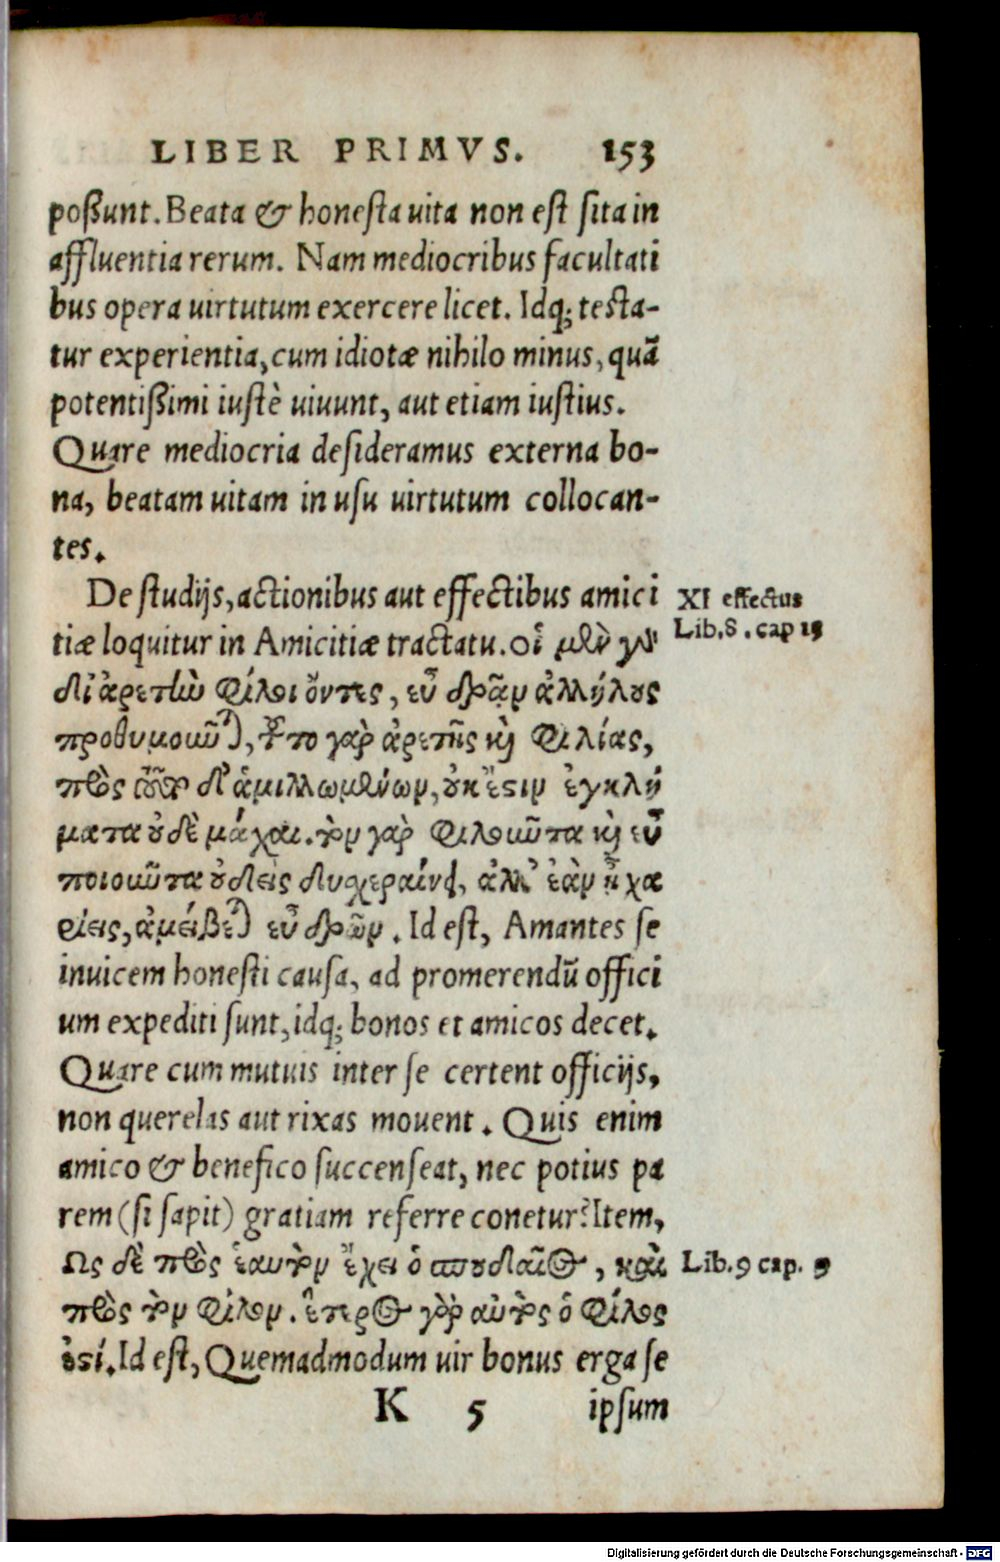 LIBER PRIMVS. 153
poßunt. Beata & honesta uita non est sita in
affluentia rerum. Nam mediocribus facultati
bus opera uirtutum exercere licet. Idq; testa-
tur experientia, cum idiotæ nihilo minus, quã
potentißimi iustè uiuunt, aut etiam iustius.
Quare mediocria desideramus externa bo-
na, beatam uitam in usu uirtutum collocan-
tes.
De studijs, actionibus aut effectibus amici
XI effectus
tiæ loquitur in Amicitiæ tractatu. οἱ μὲν γὰρ
Lib. 8. cap 15
δι᾽ ἀρετὴν φίλοι ὄντες, εὖ δρᾶν ἀλλήλους
προθυμοῦνται, τοῦτο γὰρ ἀρετῆς καὶ φιλίας,
πρὸς τοῦτο δ᾽ ἁμιλλωμένων, οὐκ ἔστιν ἐγκλή
ματα οὐδὲ μάχαι. τὸν γὰρ φιλοῦντα καὶ εὖ
ποιοῦντα οὐδεὶς δυσχεραίνει, ἀλλ᾽ ἐὰν ᾖ χα
ρίεις, ἀμείβεται εὖ δρῶν. Id est, Amantes se
inuicem honesti causa, ad promerendũ offici
um expediti sunt, idq; bonos et amicos decet.
Quare cum mutuis inter se certent officijs,
non querelas aut rixas mouent. Quis enim
amico & benefico succenseat, nec potius pa
rem (si sapit) gratiam referre conetur? Item,
Ως δὲ πρὸς ἑαυτὸν ἔχει ὁ σπουδαῖος, καὶ
Lib. 9 cap. 9
πρὸς τὸν φίλον. ἕτερος γὰρ αὐτὸς ὁ φίλος
ἐστί. Id est, Quemadmodum uir bonus erga se
K 5 ipsum
Digitalisierung gefördert durch die Deutsche Forschungsgemeinschaft - DFG